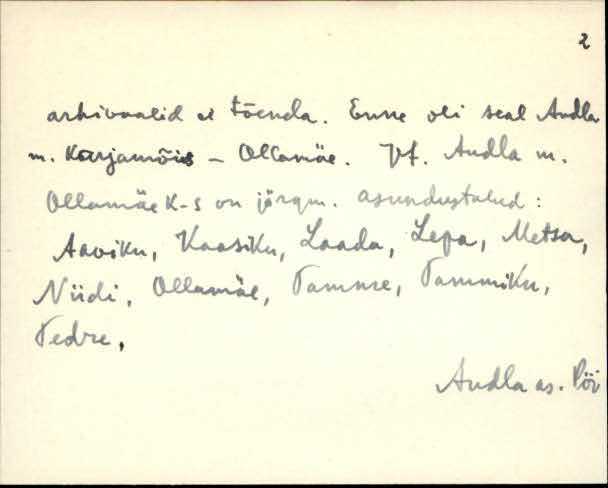 2
arhivaalid ei tõenda. Enne oli seal Audla
m. Karjamõis - Ollamäe. Vt. Audla m.
Ollamäe K-s on järgm. asundustalud:
Aaviku, Kaasiku, Laada, Lepa, Metsa,
Niidi, Ollamäe, Tamme, Tammiku,
Tedre.
Audla as. Pöi